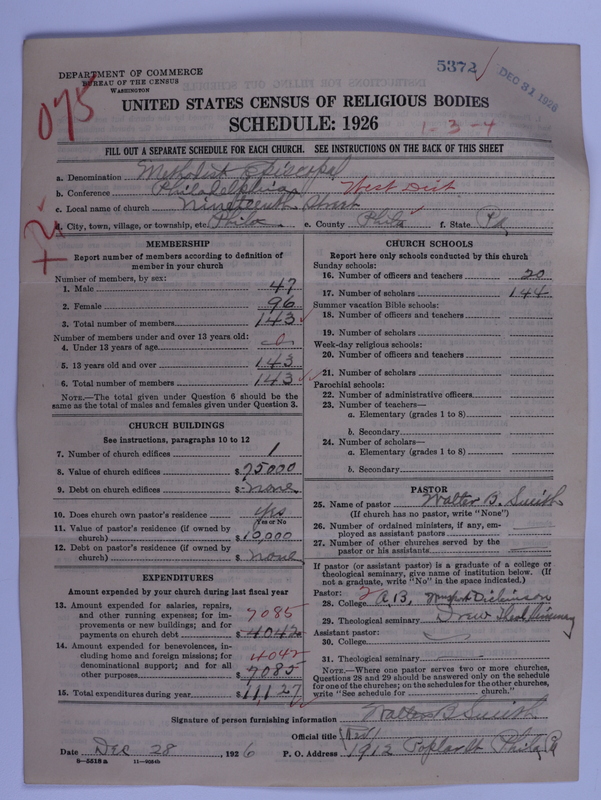 DEPARTMENT OF COMMERCE
BUREAU OF THE CENSUS
WASHINGTON
5372
DEC 31 1926
075
UNITED STATES CENSUS OF RELIGIOUS BODIES
SCHEDULE: 1926
1-3-4
FILL OUT A SEPARATE SCHEDULE FOR EACH CHURCH. SEE INSTRUCTIONS ON THE BACK OF THIS SHEET
a. Denomination Methodist Episcopal
b. Conference Philadelphia West Dist
c. Local name of church Nineteenth Street
d. City, town, village, or township, etc. Phila e. County Phila f. State Pa
MEMBERSHIP
Report number of members according to definition of
member in your church
Number of members, by sex:
1. Male 47
2. Female 96
3. Total number of members 143
Number of members under and over 13 years old:
4. Under 13 years of age 0
5. 13 years old and over 143
6. Total number of members 143
NOTE.—The total given under Question 6 should be the
same as the total of males and females given under Question 3.
CHURCH BUILDINGS
See instructions, paragraphs 10 to 12
7. Number of church edifices 1
8. Value of church edifices $75000
9. Debt on church edifices $ none
10. Does church own pastor's residence yes
Yes or No
11. Value of pastor's residence (if owned by
church) $10,000
12. Debt on pastor's residence (if owned by
church) $ none
EXPENDITURES
Amount expended by your church during last fiscal year
13. Amount expended for salaries, repairs,
and other running expenses; for im-
provements or new buildings; and for
payments on church debt 7085 $4042
14. Amount expended for benevolences, in-
cluding home and foreign missions; for
denominational support; and for all
other purposes 4042 $7085
15. Total expenditures during year $11,127
CHURCH SCHOOLS
Report here only schools conducted by this church
Sunday schools:
16. Number of officers and teachers 20
17. Number of scholars 144
Summer vacation Bible schools:
18. Number of officers and teachers
19. Number of scholars
Week-day religious schools:
20. Number of officers and teachers
21. Number of scholars
Parochial schools:
22. Number of administrative officers
23. Number of teachers—
a. Elementary (grades 1 to 8)
b. Secondary
24. Number of scholars—
a. Elementary (grades 1 to 8)
b. Secondary
PASTOR
25. Name of pastor Walter B. Smith
(If church has no pastor, write "None")
26. Number of ordained ministers, if any, em-
ployed as assistant pastors
27. Number of other churches served by the
pastor or his assistants
If pastor (or assistant pastor) is a graduate of a college or
theological seminary, give name of institution below. (If
not a graduate, write "No" in the space indicated.)
Pastor: 2
28. College A.B. Dickinson
29. Theological seminary Drew Theol Seminary
Assistant pastor:
30. College
31. Theological seminary
NOTE.—Where one pastor serves two or more churches,
Questions 28 and 29 should be answered only on the schedule
for one of the churches; on the schedules for the other churches,
write "See schedule for church."
Signature of person furnishing information Walter B Smith
Official title
Date Dec 28, 1926 P. O. Address 1912 Poplar St Phila Pa
8-5518a 11-9054b